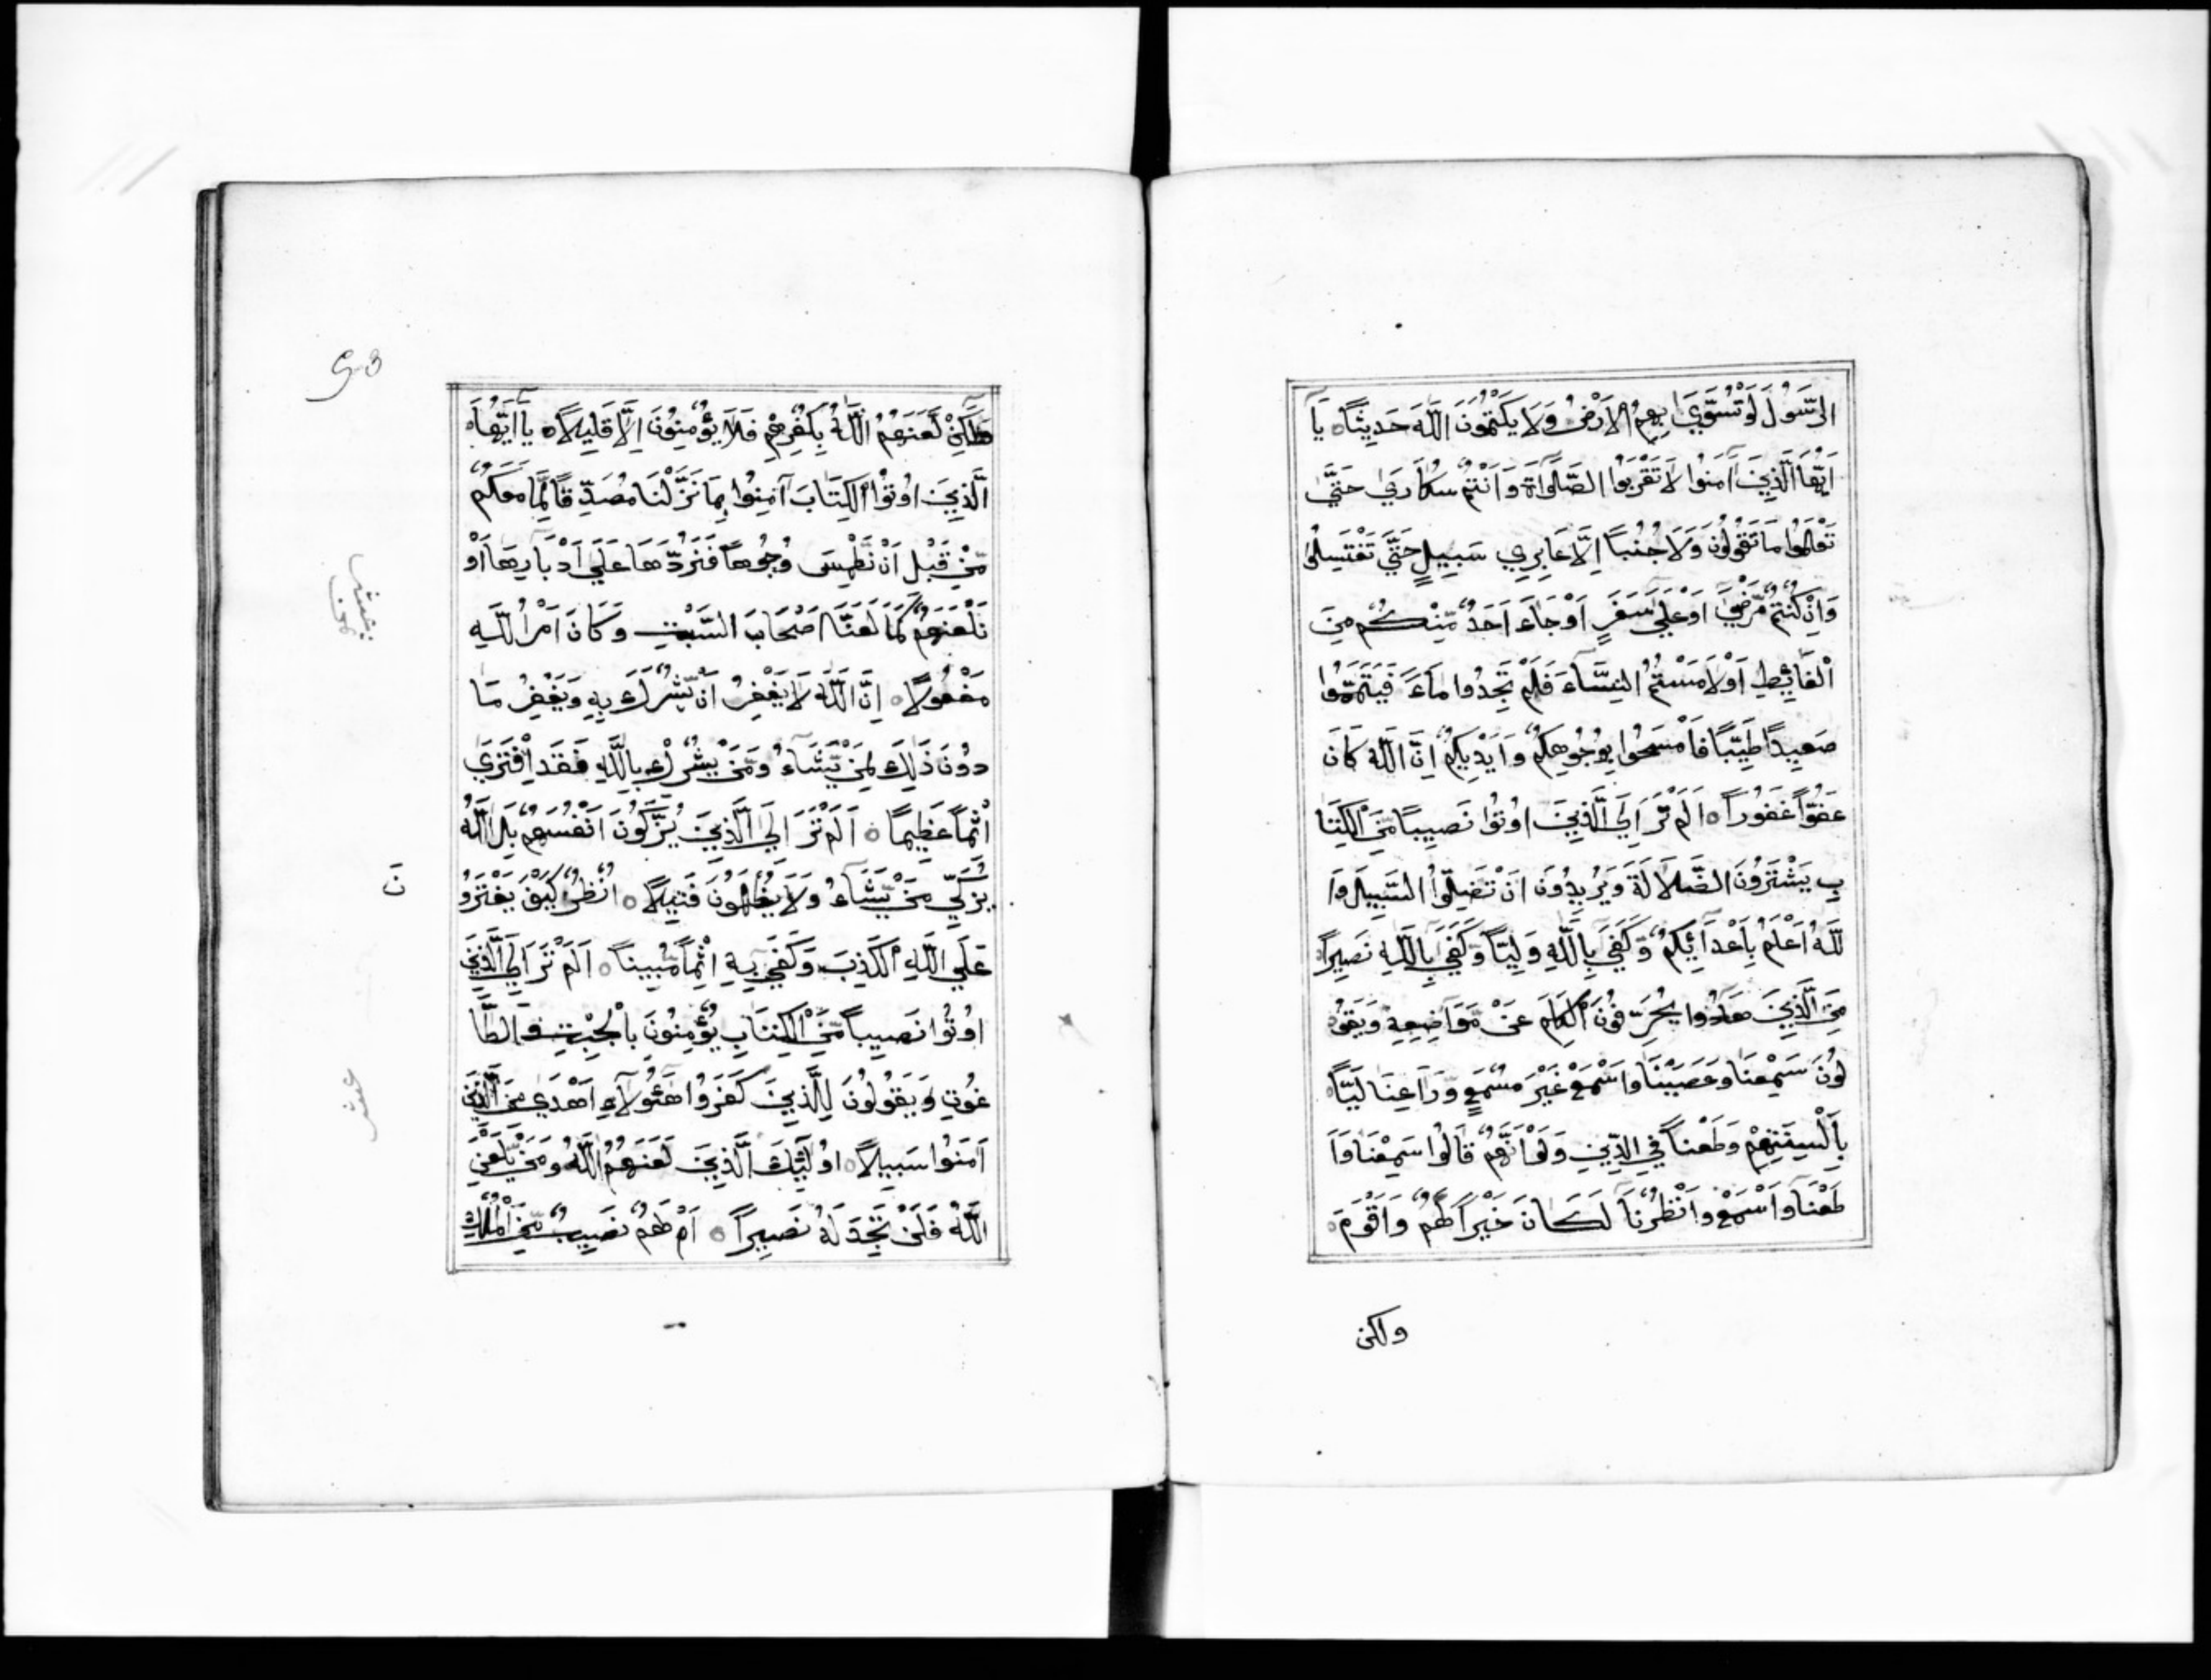 الرَّسُولَ لَوْ تُسَوَّيٰ بِهِمُ الْاَرْضُ وَلَا يَكْتُمُونَ اللَّهَ حَدِيثًا ○ يَآ
اَيُّهَا الَّذِينَ آمَنُوا لَا تَقْرَبُوا الصَّلَوٰاةَ وَاَنْتُمْ سُكَارَيٰ حَتَّيٰ
تَعْلَمُوا مَا تَقُولُونَ وَلَا جُنُبًا اِلَّا عَابِرِي سَبِيلٍ حَتَّيٰ تَغْتَسِلُوا
وَاِنْ كُنْتُمْ مَّرْضَيٰٓ اَوْ عَلَيٰ سَفَرٍ اَوْ جَآءَ اَحَدٌ مِّنْكُمْ مِنَ
الْغَآئِطِ اَوْ لَامَسْتُمُ النِّسَآءَ فَلَمْ تَجِدُوا مَآءً فَتَيَمَّمُوا
صَعِيدًا طَيِّبًا فَامْسَحُوا بِوُجُوهِكُمْ وَاَيْدِيكُمْ اِنَّ اللَّهَ كَانَ
عَفُوًّا غَفُورًا ○ اَلَمْ تَرَ اِلَي الَّذِينَ اُوتُوا نَصِيبًا مِّنَ الْكِتَا
بِ يَشْتَرُونَ الضَّلَالَةَ وَيُرِيدُونَ اَنْ تَضِلُّوا السَّبِيلَ وَا
للَّهُ اَعْلَمُ بِاَعْدَآئِكُمْ وَكَفَيٰ بِاللَّهِ وَلِيًّا وَّكَفَيٰ بِاللَّهِ نَصِيرًا ○
مِنَ الَّذِينَ هَادُوا يُحَرِّفُونَ الْكَلِمَ عَنْ مَّوَاضِعِهِ وَيَقُو
لُونَ سَمِعْنَا وَعَصَيْنَا وَاسْمَعْ غَيْرَ مُسْمَعٍ وَّرَاعِنَا لَيًّا
بِاَلْسِنَتِهِمْ وَطَعْنًا فِي الدِّينِ وَلَوْ اَنَّهُمْ قَالُوا سَمِعْنَا وَاَ
طَعْنَا وَاسْمَعْ وَانْظُرْنَا لَكَانَ خَيْرًا لَهُمْ وَاَقْوَمَ
ولكن
وَلَكِنْ لَّعَنَهُمُ اللَّهُ بِكُفْرِهِمْ فَلَا يُؤْمِنُونَ اِلَّا قَلِيلًا ○ يَآ اَيُّهَا
الَّذِينَ اُوتُوا الْكِتَابَ آمِنُوا بِمَا نَزَّلْنَا مُصَدِّقًا لِّمَا مَعَكُمْ
مِّنْ قَبْلِ اَنْ نَّطْمِسَ وُجُوهًا فَنَرُدَّهَا عَلَيٰ اَدْبَارِهَا اَوْ
نَلْعَنَهُمْ كَمَا لَعَنَّا اَصْحَابَ السَّبْتِ وَكَانَ اَمْرُ اللَّهِ
مَفْعُولًا ○ اِنَّ اللَّهَ لَا يَغْفِرُ اَنْ يُّشْرَكَ بِهِ وَيَغْفِرُ مَا
دُونَ ذَٰلِكَ لِمَنْ يَّشَآءُ وَمَنْ يُّشْرِكْ بِاللَّهِ فَقَدِ افْتَرَيٰٓ
اِثْمًا عَظِيمًا ○ اَلَمْ تَرَ اِلَي الَّذِينَ يُزَكُّونَ اَنْفُسَهُمْ بَلِ اللَّهُ
يُزَكِّي مَنْ يَّشَآءُ وَلَا يُظْلَمُونَ فَتِيلًا ○ اُنْظُرْ كَيْفَ يَفْتَرُو
عَلَي اللَّهِ الْكَذِبَ وَكَفَيٰ بِهِ اِثْمًا مُّبِينًا ○ اَلَمْ تَرَ اِلَي الَّذِينَ
اُوتُوا نَصِيبًا مِّنَ الْكِتَابِ يُؤْمِنُونَ بِالْجِبْتِ وَالطَّا
غُوتِ وَيَقُولُونَ لِلَّذِينَ كَفَرُوا هَٰٓؤُلَآءِ اَهْدَيٰ مِنَ الَّذِينَ
آمَنُوا سَبِيلًا ○ اُولَٰٓئِكَ الَّذِينَ لَعَنَهُمُ اللَّهُ وَمَنْ يَّلْعَنِ
اللَّهُ فَلَنْ تَجِدَ لَهُ نَصِيرًا ○ اَمْ لَهُمْ نَصِيبٌ مِّنَ الْمُلْكِ
نَ
عشر